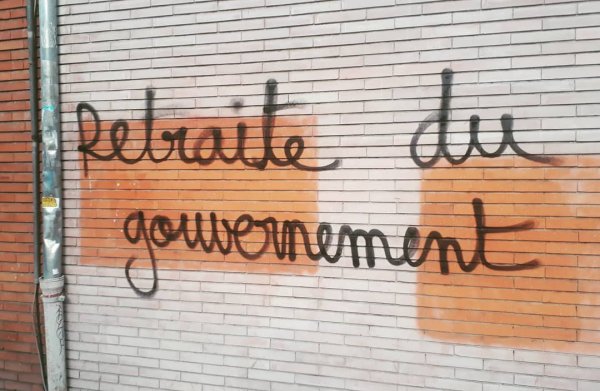 Retraite du
gouvernement